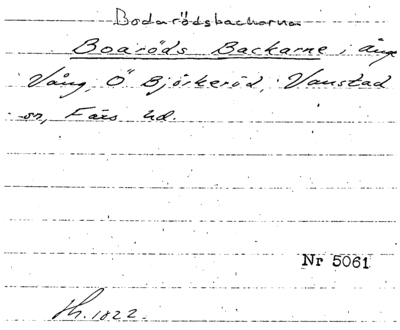 Bodarödsbackarna
Boaröds Backarne i änge
Vång, Ö Björkeröd, Vanstad
sn, Färs hd.
Nr 5061
Sk. 1822.